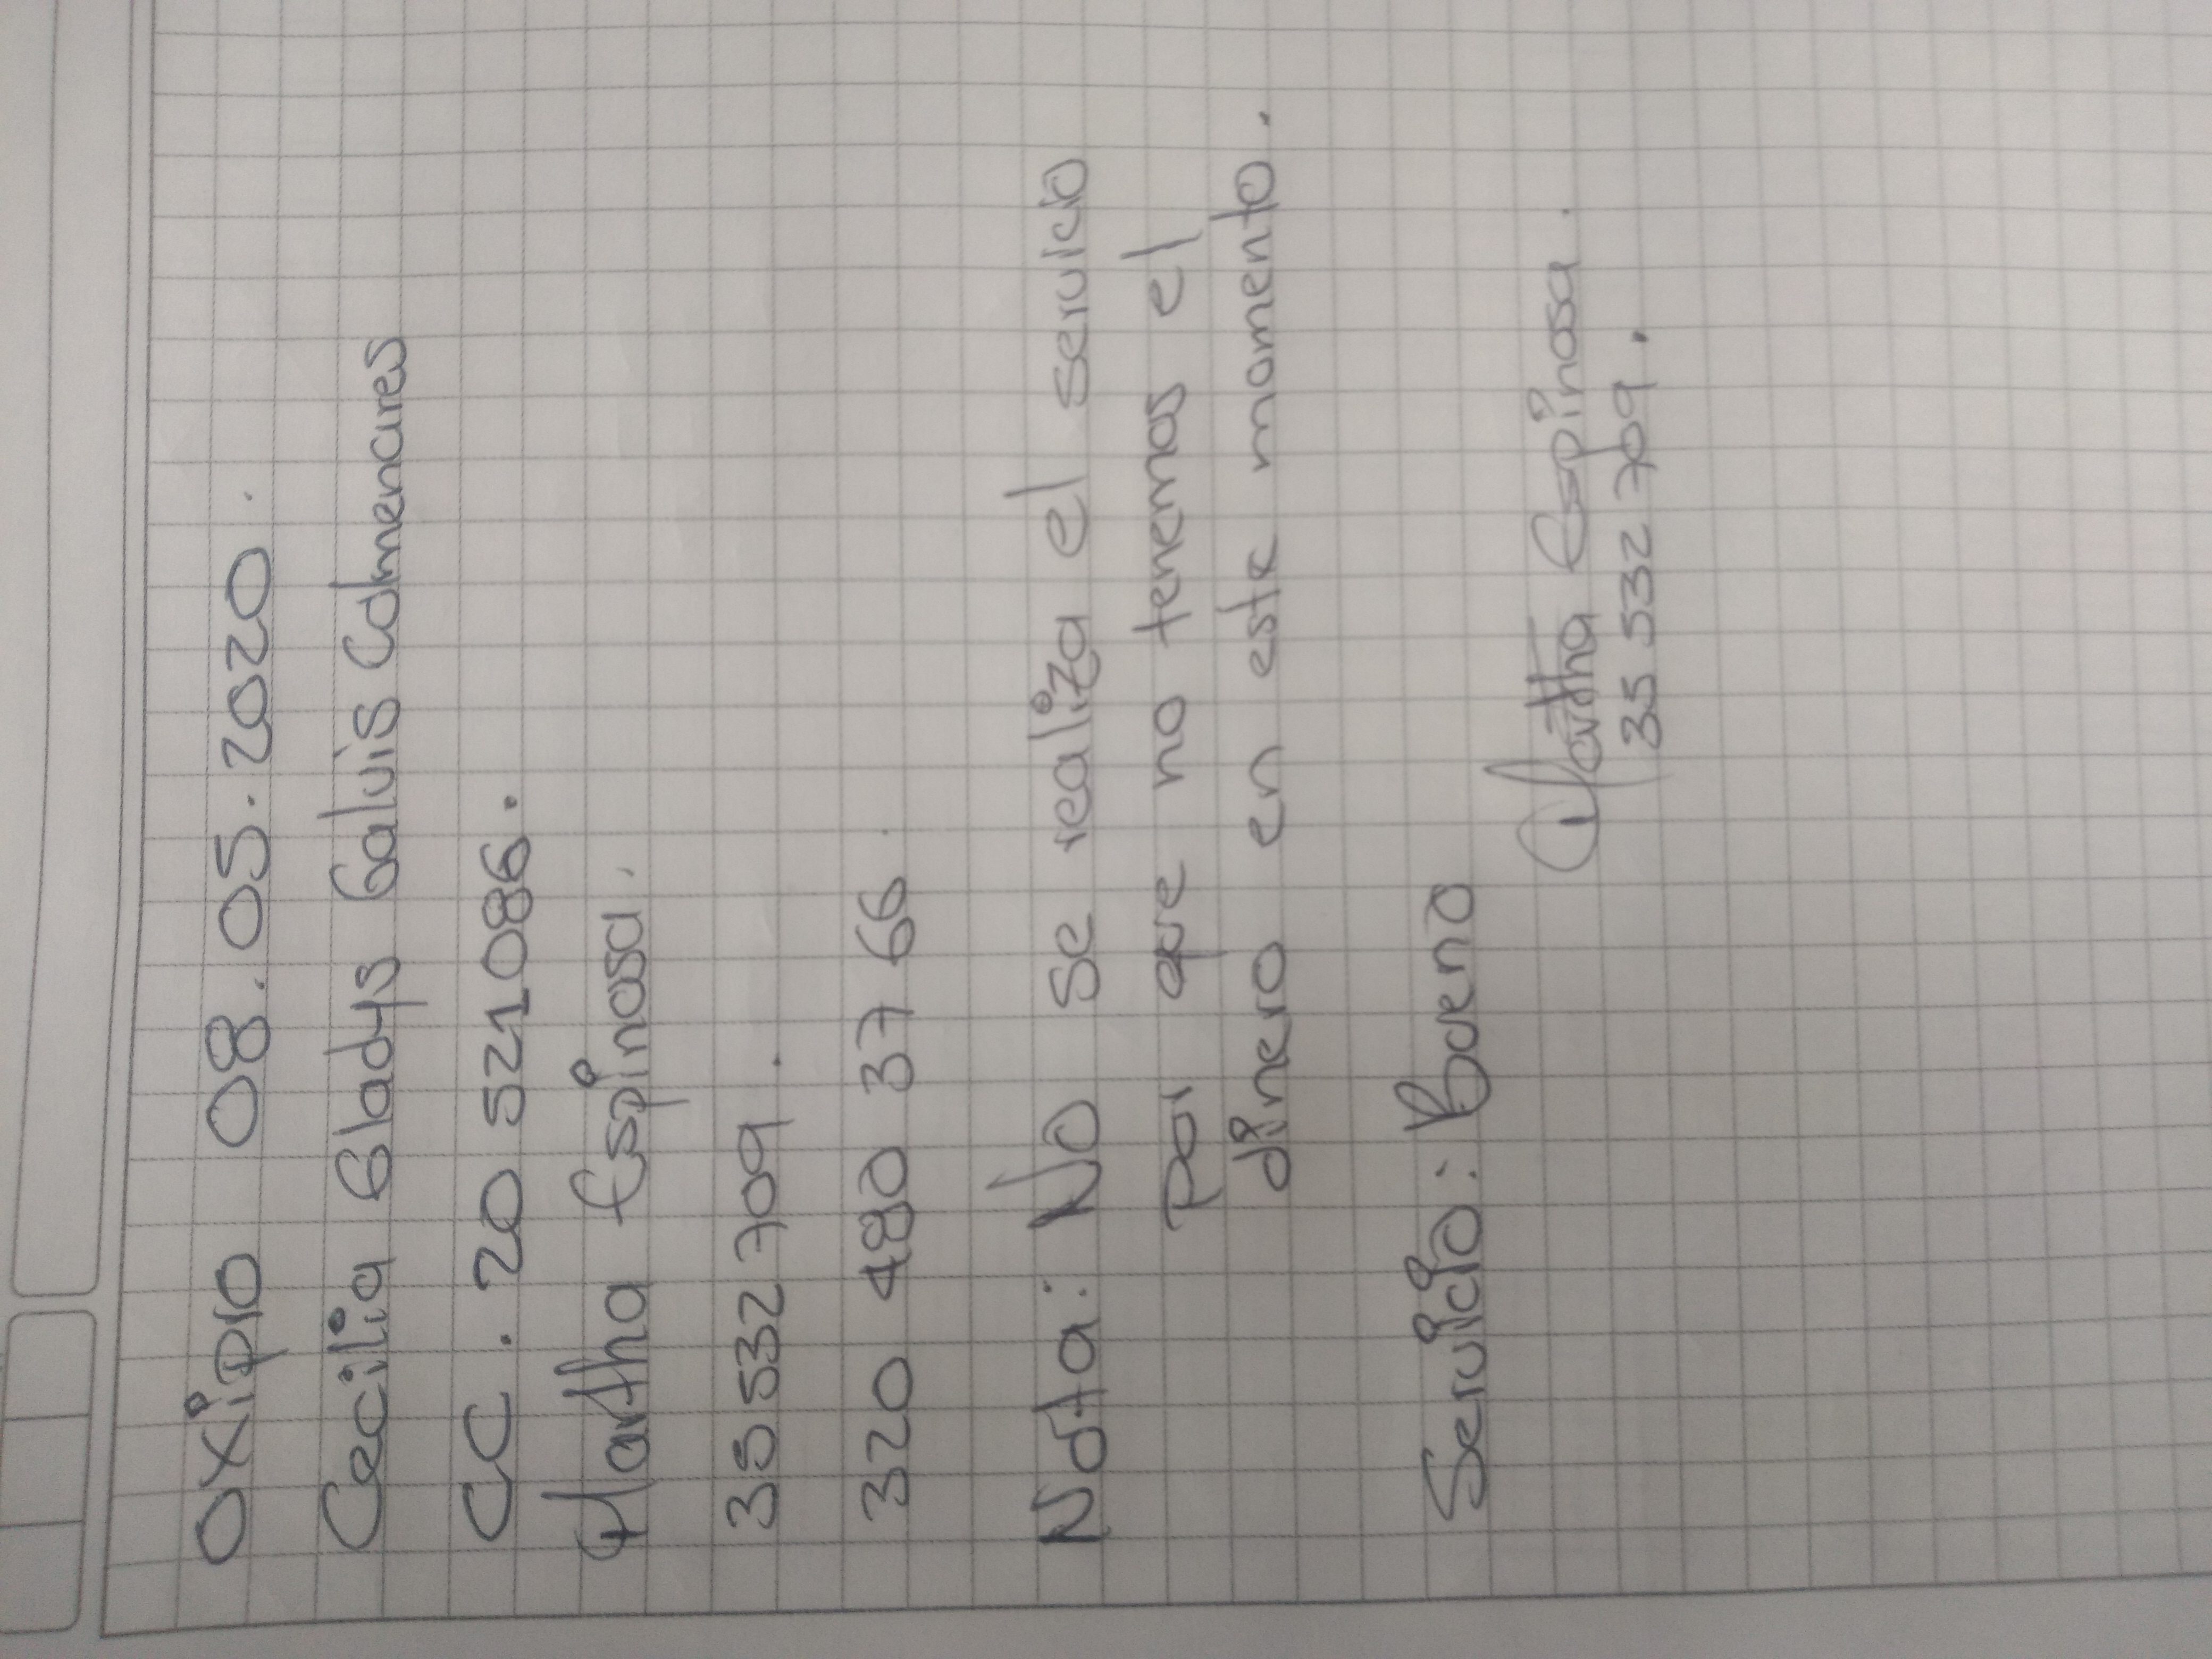 Oxipro 08.05.2020.
Cecilia Gladys Galvis Colmenares
CC. 20 521 086.
Martha Espinosa.
35 532 709.
320 480 37 66.
Nota: No se realiza el servicio
por que no tenemos el
dinero en este momento.
Servicio: Bueno
Martha Espinosa.
35 532 709.